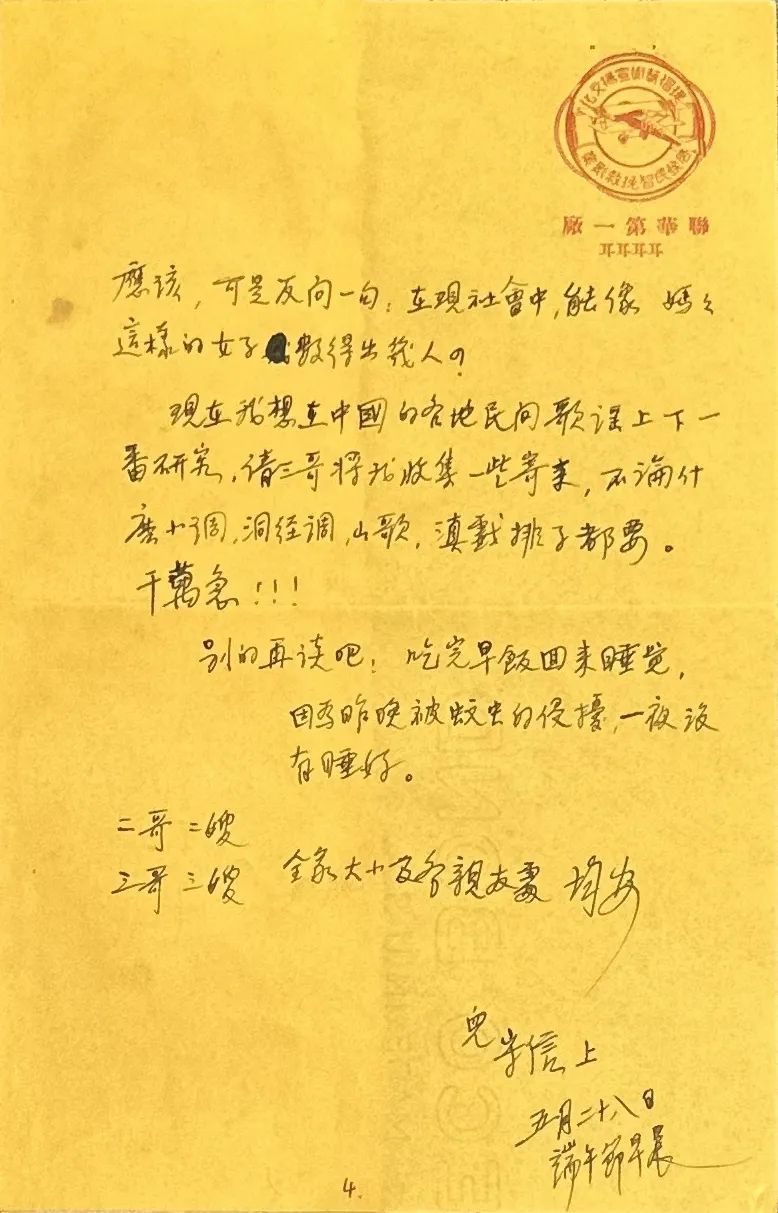 提倡藝術宣揚文化
啟發民智挽救影業
聯華第一廠
應该，可是反问一句：在現社會中，能像 媽々
這樣的女子數得出幾人？
現在我想在中國的各地民间歌谣上下一
番研究，请三哥将我收集一些寄来，不論什
麽小调，洞经调，山歌，滇戲排子都要。
千萬急！！！
别的再谈吧！吃完早飯回来睡觉，
因為昨晚被蚊虫的侵擾，一夜没
有睡好。
二哥 二嫂
三哥 三嫂 全家大小及各親友處 均安
兒 守信上
五月二十八日
端午節早晨
4.